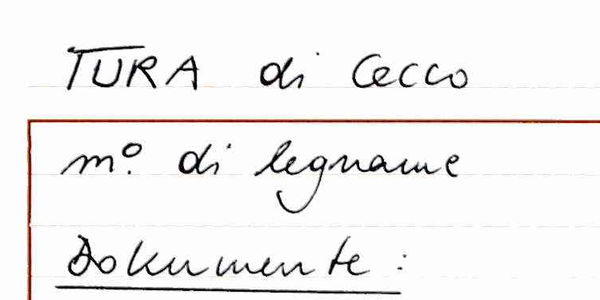 TURA di Cecco
mº. di legname
Dokumente: